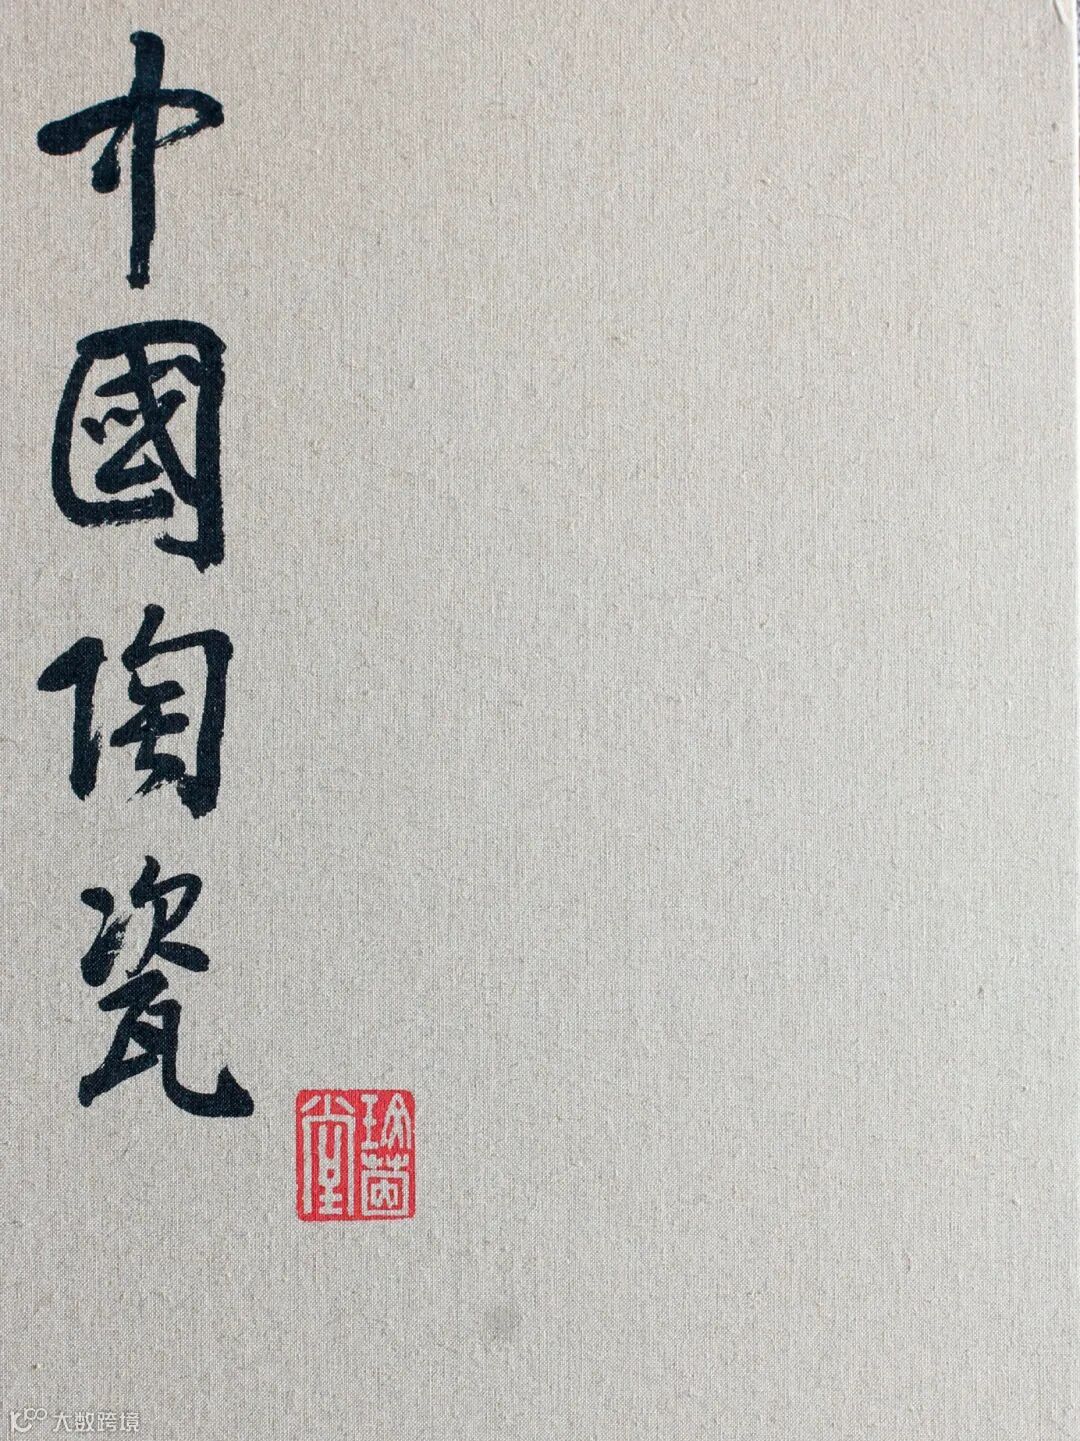 中國陶瓷
大数跨境